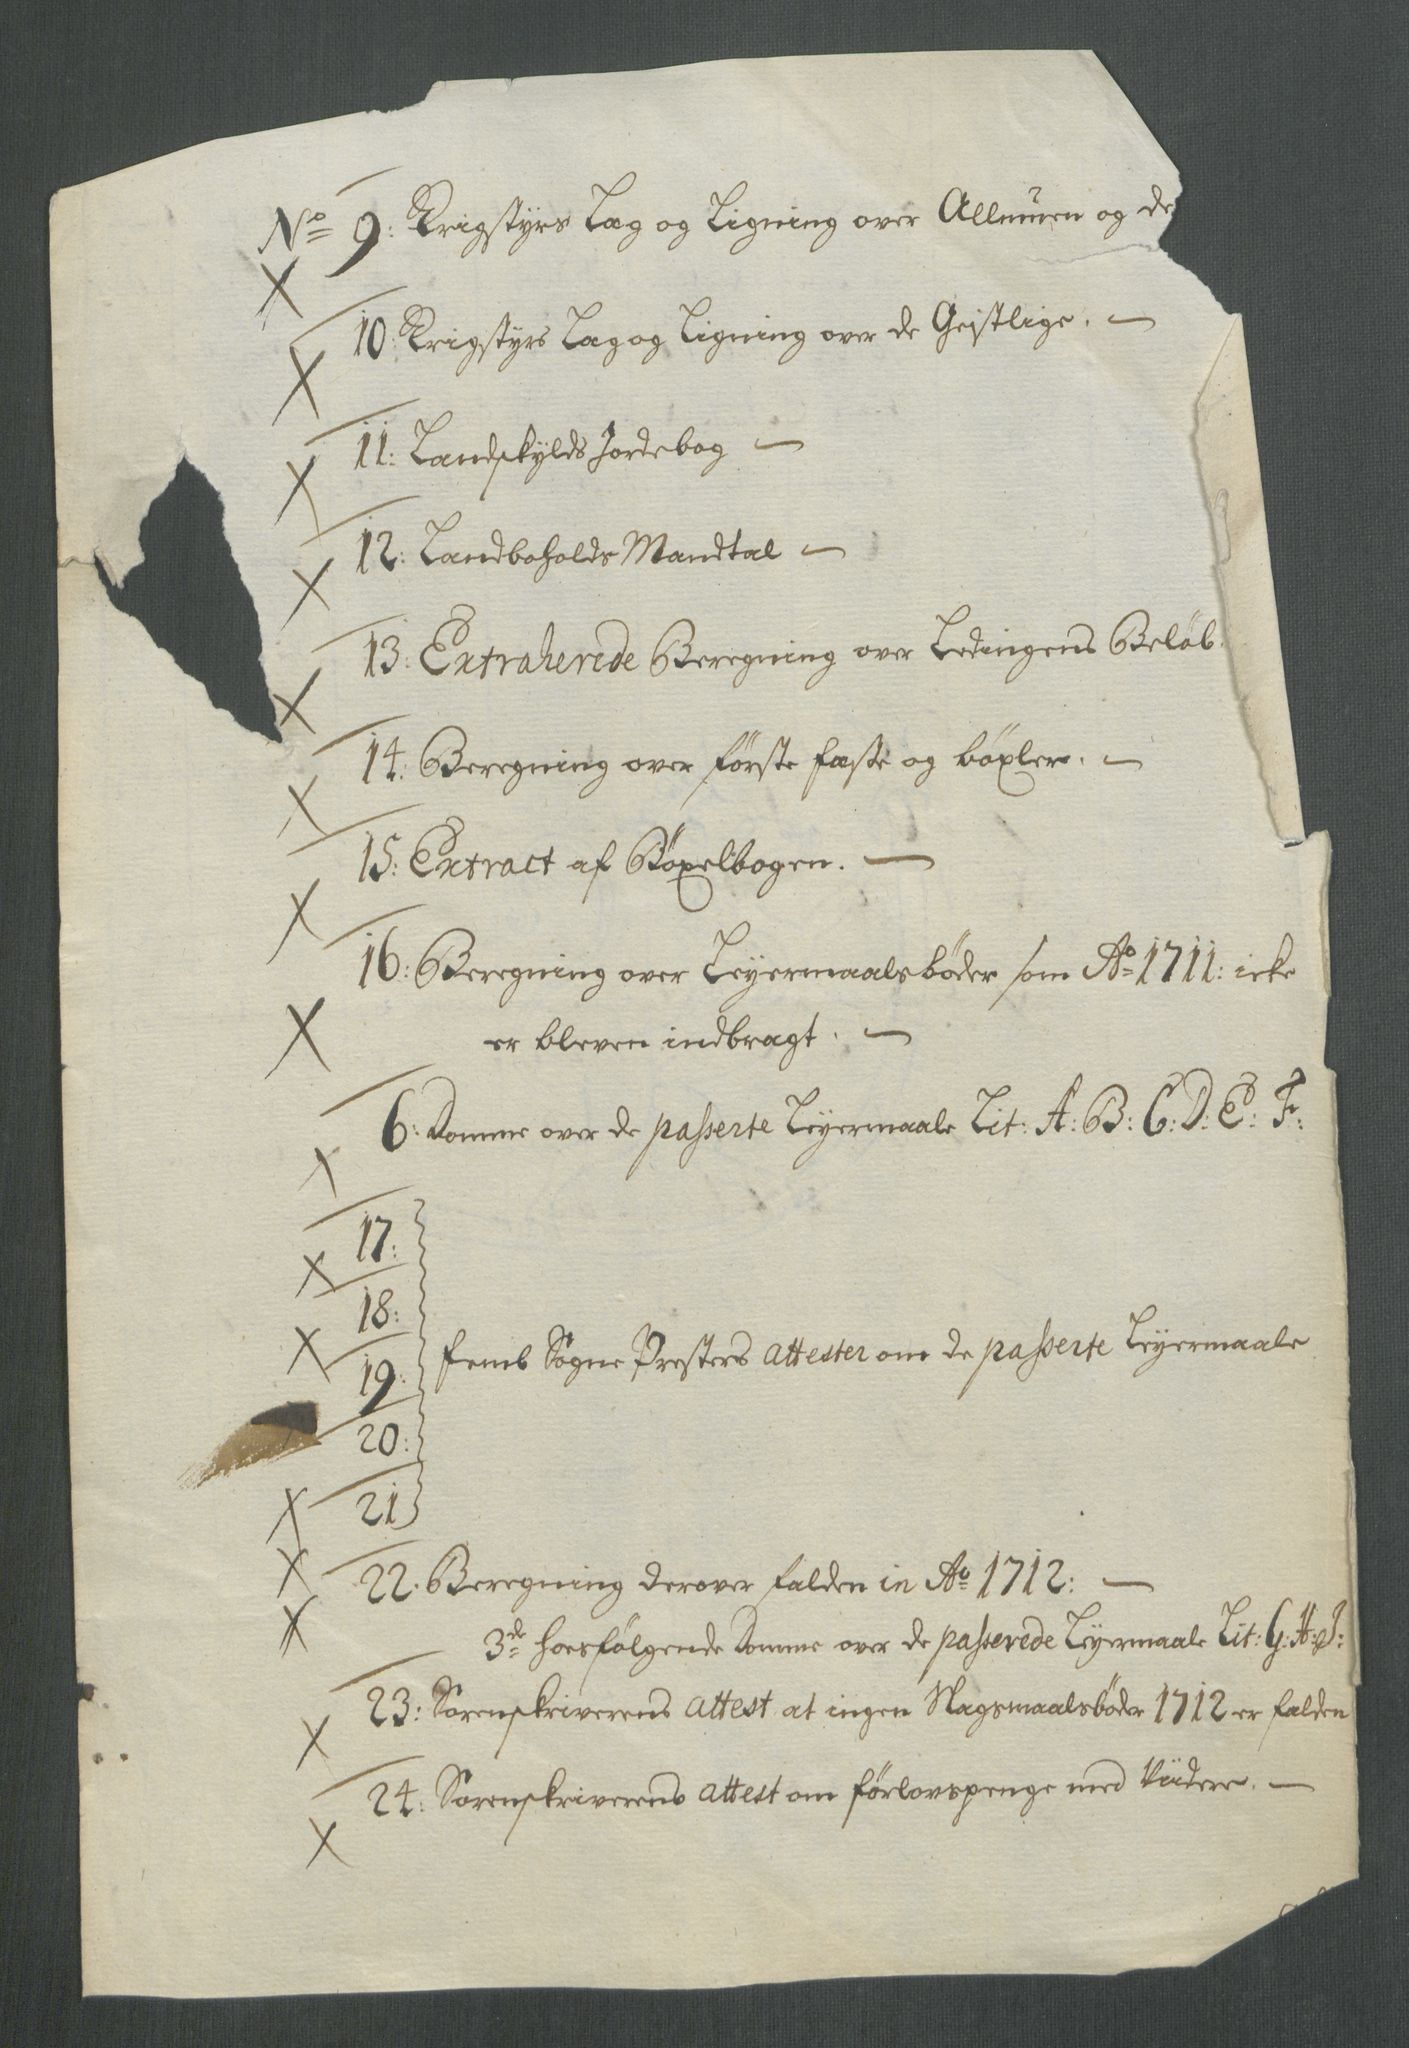 No 9: Krigstyrs Lag og Ligning over Allmuen og de
10: Krigstyrs Lag og Ligning over de Geistlige.
11: Landskylds Jordebog
12: Landboholds Mandtal
13: Extraherede Beregning over Ledingens Beløb.
14: Beregning over Første Fæste og böxler.
15: Extract af Böxelbogen.
16: Beregning over Leyermaalsbøder som Ao 1711: icke
er bleven indbragt.
6: Domme over de passerte Leyermaale Lit: A: B: C: D: E: F:
17:
18:
femb Sogne Presters attester om de passerte Leyermaale
19:
20:
21
22. Beregning derover falden in Ao 1712:
3de hoesfølgende Domme over de passerede Leyermaale Lit: G: H: J:
23: Sorenskriverens attest at ingen Slagsmaalsbøder 1712 er falden
24: Sorenskriverens attest om förlovspenge med Viidere.